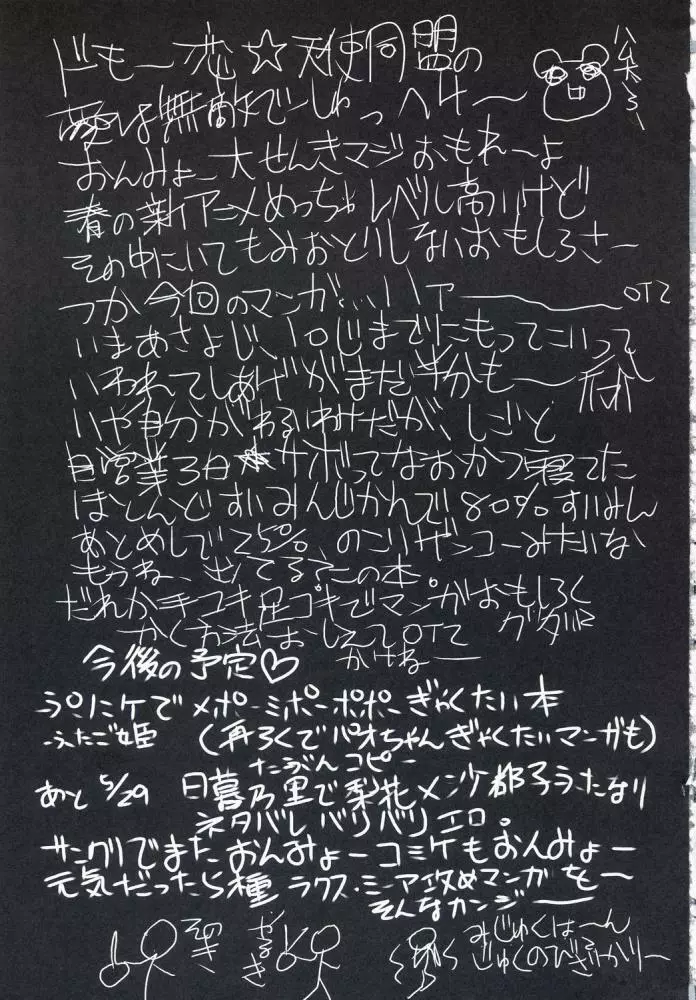 ドもー恋☆天使同盟の
愛は無敵でーしゅっへけ〜
おんみょー大せんきマジおもれーよ
春の新アニメめっちゃレベル高いけど
その中にいてもみおとりしないおもしろさー
つか今回のマンガ… ハァーーー OTZ
いまあさよじ、10じまでにもってこいって
いわれてしあげがまだ半分も――
いや自分がわるいわけだが、しごと
営業3日 サボってなおかつ寝てた
ほとんどすいみんじかんで80%すいみん
あとめしで25% のこりザンコーみたいな
もうね、出てる？この本。
だれか手コキ足コキでマンガおもしろく
かく方法おしえてOTZ
かけねー
今後の予定♡
ぷにケでメポーミポーポポーぎゃくたい本
ふたご姫 (再ろくでパオちゃんぎゃくたいマンガも)
たぶんコピー
あと5/29 日暮乃里で梨花メンケ都子うたなり
ネタバレバリバリエロ。
サンクリでまたおんみょーコミケもおんみょー
元気だったら種 ラクス・ミーア攻めマンガを〜
そんなカンジ――
そのき
やるき
みじゅくはーん
じゅくのびざかりー